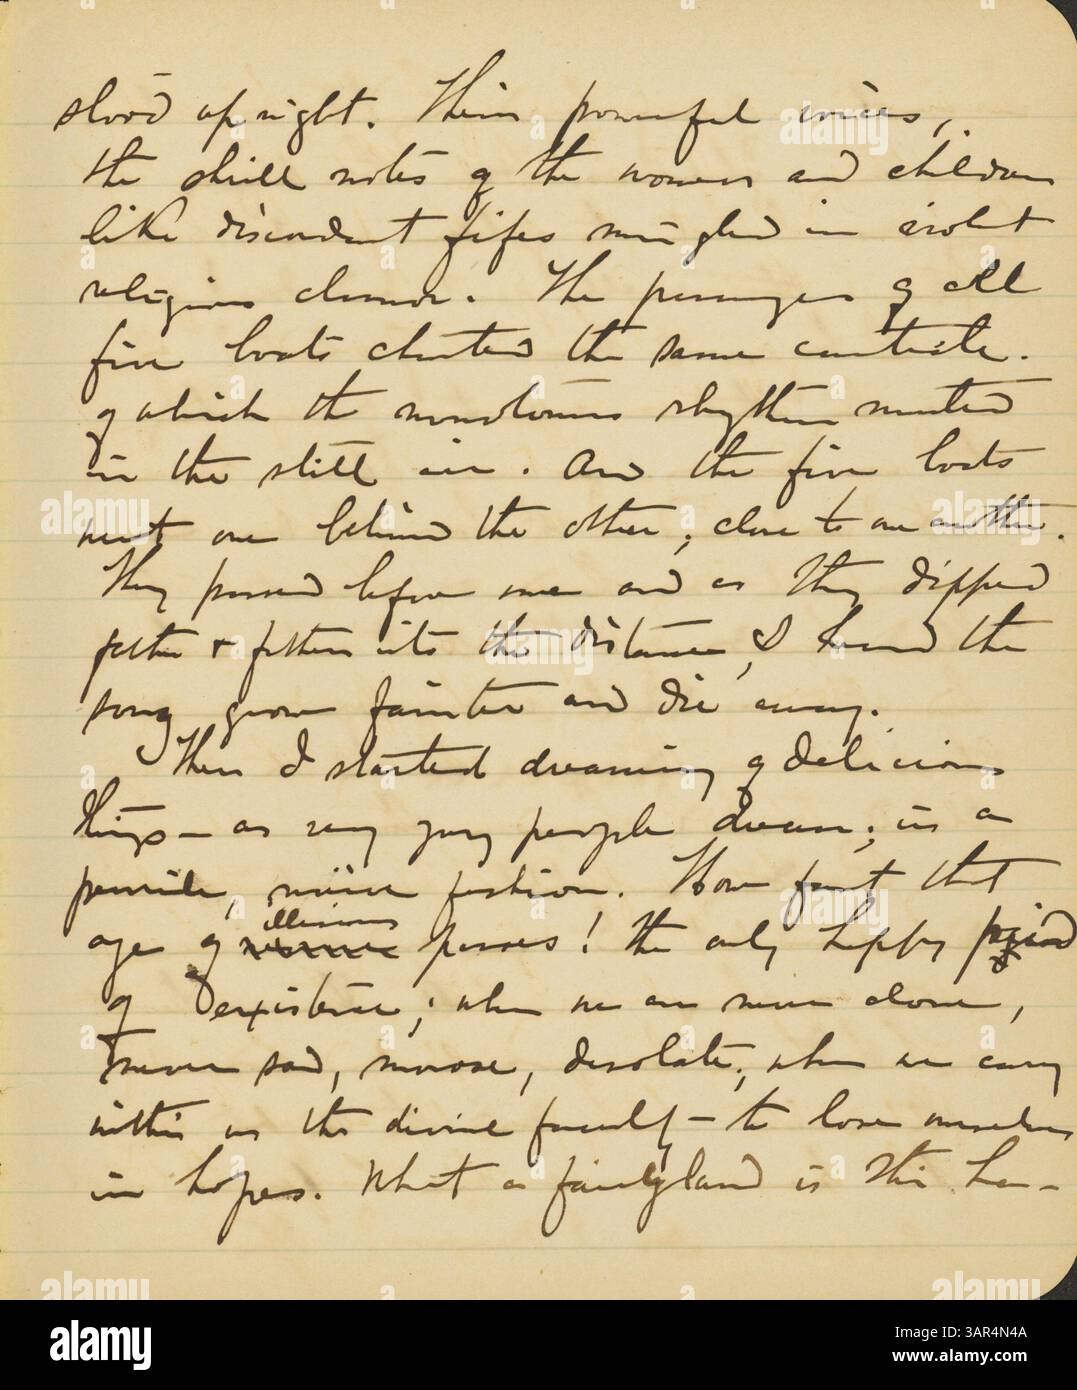 stood upright. Their powerful voices,
the shrill notes of the women and children
like discordant fifes mingled in violent
religious clamor. The passengers of all
five boats chanted the same canticle.
of which the monotonous rhythm mounted
in the still air. And the five boats
went one behind the other, close to one another.
They passed before me and as they dipped
farther & farther into the distance, I heard the
song grow fainter and die away.
Then I started dreaming of delicious
things – as very young people dream; in a
puerile, naïve fashion. How fast that
illusions
age of passes! the only happy period
of existence; when we are never alone,
never sad, morose, desolate; when we carry
within us the divine faculty – to lose ourselves
in hopes. What a fairyland is this ha-
alamy
Image ID: 3AR4N4A
www.alamy.com